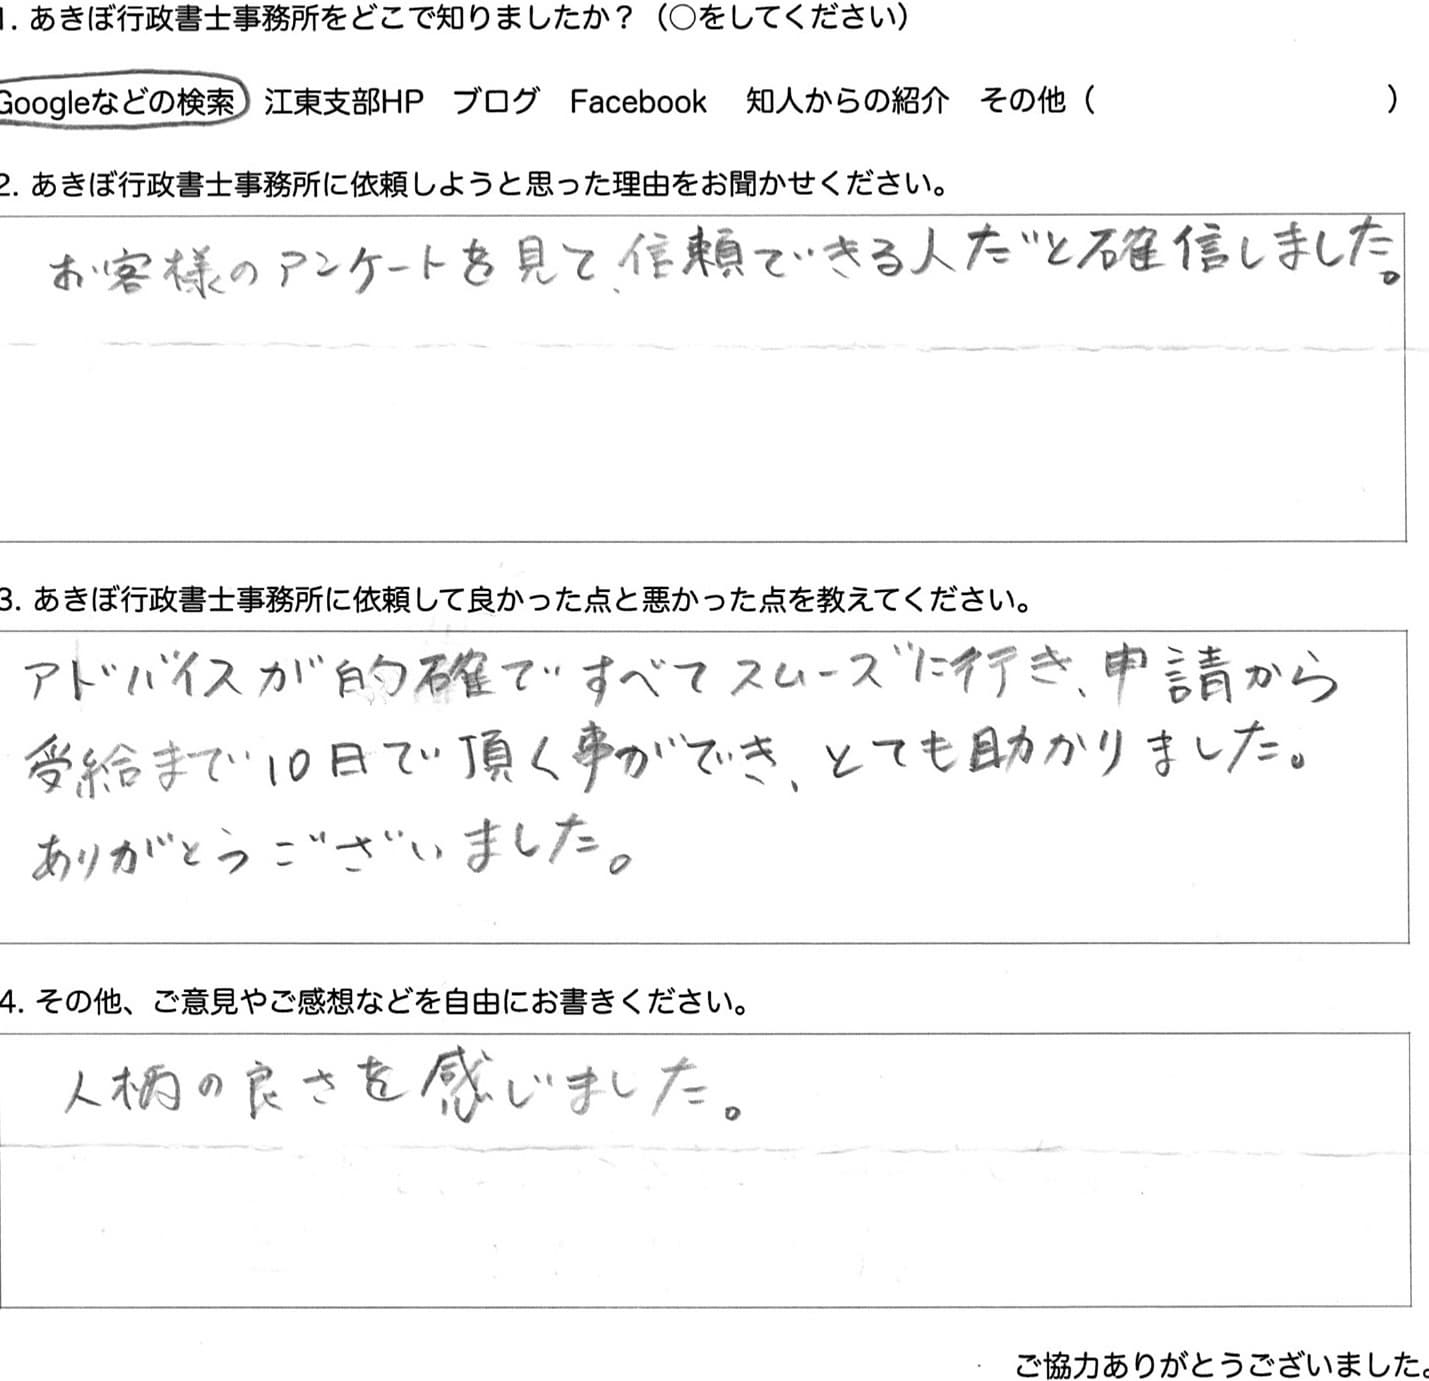 1. あきぼ行政書士事務所をどこで知りましたか？（○をしてください）
Googleなどの検索 江東支部HP ブログ Facebook 知人からの紹介 その他（ ）
2. あきぼ行政書士事務所に依頼しようと思った理由をお聞かせください。
お客様のアンケートを見て、信頼できる人だと確信しました。
3. あきぼ行政書士事務所に依頼して良かった点と悪かった点を教えてください。
アドバイスが的確ですべてスムーズに行き、申請から
受給まで10日で頂く事ができ、とても助かりました。
ありがとうございました。
4. その他、ご意見やご感想などを自由にお書きください。
人柄の良さを感じました。
ご協力ありがとうございました。